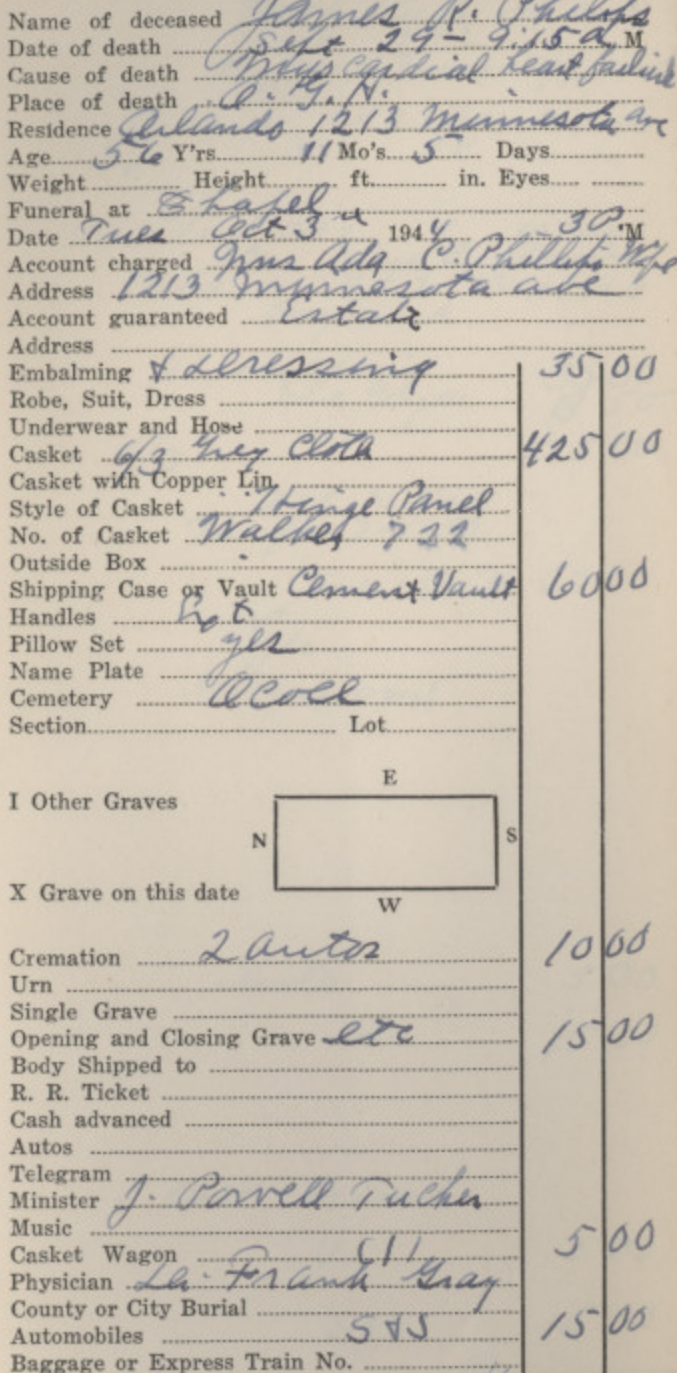 Name of deceased James R. Philips
Date of death Sept 29 - 9:15 a M
Cause of death Myo cardial heart failure
Place of death O. G. H.
Residence Orlando 1213 Minnesota ave
Age 56 Y'rs. 11 Mo's 5 Days
Weight Height ft. in. Eyes
Funeral at Chapel
Date Tues Oct 3 1944 3 P. M
Account charged Mrs Ada C. Phillips Wife
Address 1213 Minnesota ave
Account guaranteed Estate
Address
Embalming & Dressing 35 00
Robe, Suit, Dress
Underwear and Hose
Casket 6/3 Grey Cloth 425 00
Casket with Copper Lin.
Style of Casket Hinge Panel
No. of Casket Walker 722
Outside Box
Shipping Case or Vault Cement Vault 60 00
Handles
Pillow Set yes
Name Plate
Cemetery Ocoee
Section Lot
E
I Other Graves
N S
X Grave on this date
W
Cremation 2 autos 10 00
Urn
Single Grave
Opening and Closing Grave etc 15 00
Body Shipped to
R. R. Ticket
Cash advanced
Autos
Telegram
Minister J. Powell Tucker
Music 5 00
Casket Wagon (1)
Physician Dr. Frank Gray
County or City Burial
Automobiles S & S 15 00
Baggage or Express Train No.